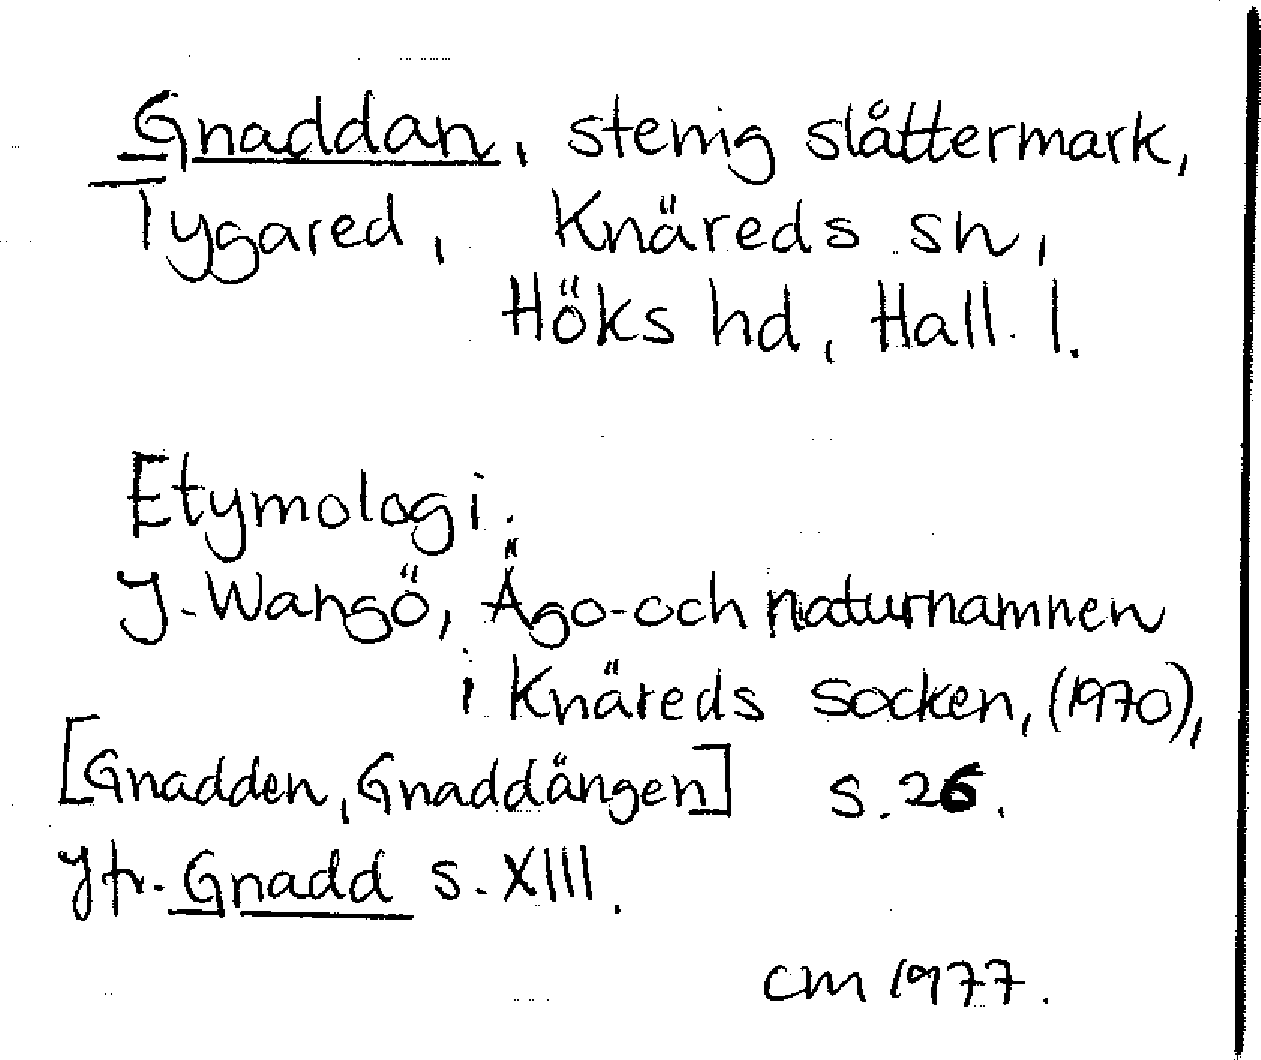 Gnaddan, stenig slåttermark,
Tygared, Knäreds sn,
Höks hd, Hall. l.
Etymologi.
J. Wangö, Ägo- och naturnamnen
i Knäreds socken, (1970),
[Gnadden, Gnaddängen] s. 26.
Jfr. Gnadd s. XIII.
CM 1977.